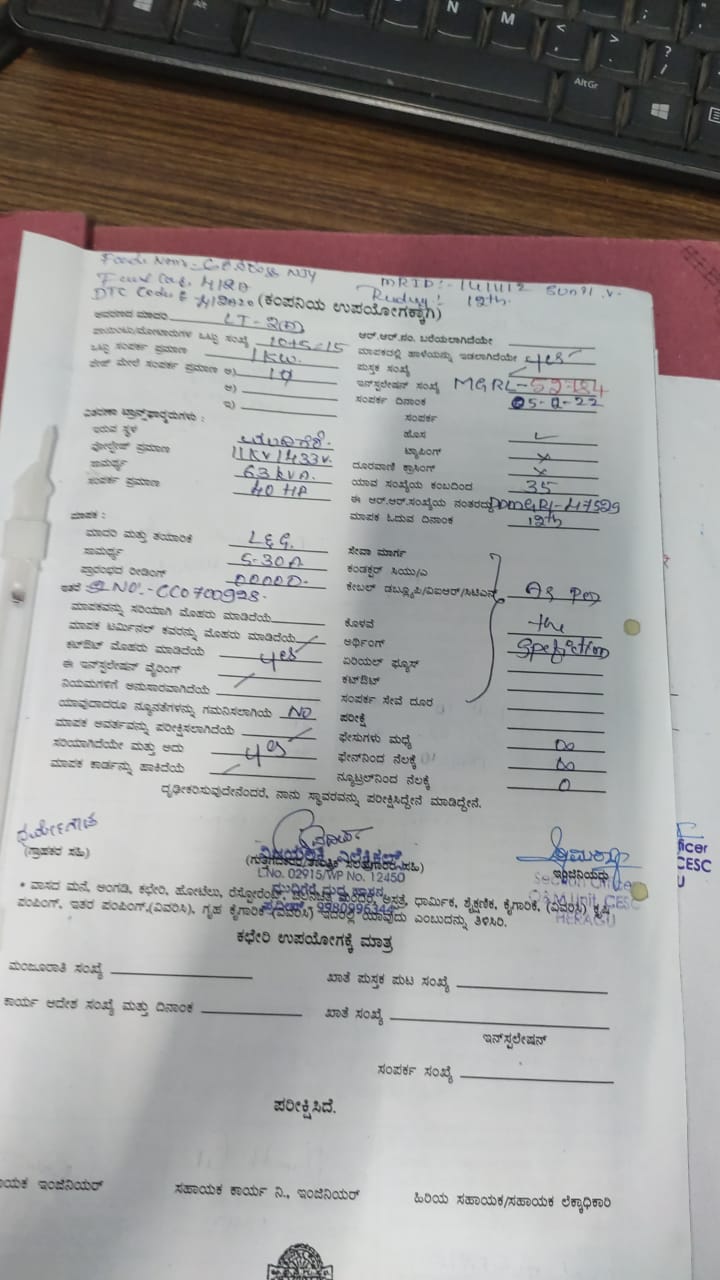 N
M
Alt
AltGr
DTC Code: 4/2020 (ಕಂಪನಿಯ ಉಪಯೋಗಕ್ಕಾಗಿ)
MRID:- 1411112
12th.
LT-2(a)
ಆರ್.ಆರ್.ನಂ. ಬರೆಯಲಾಗಿದೆಯೇ
ಸಂಖ್ಯೆ 10+5=15
ಮಾಪಕದಲ್ಲಿ ಹಾಳೆಯನ್ನು ಇಡಲಾಗಿದೆಯೇ yes
ಒಟ್ಟು ಸಂಪರ್ಕ ಪ್ರಮಾಣ 1KW.
ಪುಸ್ತಕ ಸಂಖ್ಯೆ
ಮೇಲೆ ಸಂಪರ್ಕ ಪ್ರಮಾಣ ಅ) 1ϕ
ಇನ್‌ಸ್ಟಲೇಷನ್ ಸಂಖ್ಯೆ MGRL-
ಆ)
ಸಂಪರ್ಕ ದಿನಾಂಕ
ಇ)
ಸಂಪರ್ಕ
ಇರುವ ಸ್ಥಳ
ಹೊಸ ✓
ವೋಲ್ಟೇಜ್ ಪ್ರಮಾಣ 11KV/433V.
ಟ್ಯಾಪಿಂಗ್ ×
ಸಾಮರ್ಥ್ಯ 63 kVA.
ದೂರವಾಣಿ ಕ್ರಾಸಿಂಗ್ ×
ಸಂಪರ್ಕ ಪ್ರಮಾಣ 40 HP
ಯಾವ ಸಂಖ್ಯೆಯ ಕಂಬದಿಂದ 35
ಈ ಆರ್.ಆರ್.ಸಂಖ್ಯೆಯ ನಂತರದ್ದು
ಮಾಪಕ :
ಮಾಪಕ ಓದುವ ದಿನಾಂಕ 12th
ಮಾದರಿ ಮತ್ತು ತಯಾರಿಕೆ L&G.
ಸೇವಾ ಮಾರ್ಗ
ಸಾಮರ್ಥ್ಯ 5-30A
ಕಂಡಕ್ಟರ್ ಸಿಯು/ಎ
ಪ್ರಾರಂಭದ ರೀಡಿಂಗ್ 00000.
ಕೇಬಲ್ ಡಬ್ಲ್ಯೂಪಿ/ಐಆರ್/ಸಿಟಿಎಸ್ As per
ಇತರೆ SL NO:-CC0700928.
ಮಾಪಕವನ್ನು ಸರಿಯಾಗಿ ಮೊಹರು ಮಾಡಿದೆಯೆ
ಕೊಳವೆ the
ಮಾಪಕ ಟರ್ಮಿನಲ್ ಕವರನ್ನು ಮೊಹರು ಮಾಡಿದೆಯೇ
ಅರ್ಥಿಂಗ್
ಕಟ್‌ಔಟ್ ಮೊಹರು ಮಾಡಿದೆಯೇ yes
ಏರಿಯಲ್ ಫ್ಯೂಸ್
ಈ ಇನ್‌ಸ್ಟಲೇಷನ್ ವೈರಿಂಗ್
ಕಟ್‌ಔಟ್
ನಿಯಮಗಳಿಗೆ ಅನುಸಾರವಾಗಿದೆಯೇ
ಸಂಪರ್ಕ ಸೇವೆ ದೂರ
ಯಾವುದಾದರೂ ನ್ಯೂನತೆಗಳನ್ನು ಗಮನಿಸಲಾಗಿಯೆ NO
ಪರೀಕ್ಷೆ
ಮಾಪಕ ಆವರ್ತವನ್ನು ಪರೀಕ್ಷಿಸಲಾಗಿದೆಯೆ
ಫೇಸುಗಳು ಮಧ್ಯೆ ∞
ಸರಿಯಾಗಿದೆಯೇ ಮತ್ತು ಅದು yes
ಫೇಸ್‌ನಿಂದ ನೆಲಕ್ಕೆ ∞
ಮಾಪಕ ಕಾರ್ಡನ್ನು ಹಾಕಿದೆಯೆ
ನ್ಯೂಟ್ರಲ್‌ನಿಂದ ನೆಲಕ್ಕೆ 0
ದೃಢೀಕರಿಸುವುದೇನೆಂದರೆ, ನಾನು ಸ್ಥಾವರವನ್ನು ಪರೀಕ್ಷಿಸಿದ್ದೇನೆ ಮಾಡಿದ್ದೇನೆ.
(ಗ್ರಾಹಕರ ಸಹಿ)
ಇಂಜಿನಿಯರು
L.No. 02915/WP No. 12450
Section Officer
O&M Unit, CESC
HERAGU
ficer
CESC
• ವಾಸದ ಮನೆ, ಅಂಗಡಿ, ಕಛೇರಿ, ಹೋಟೆಲು, ರೆಸ್ಟೋರೆಂಟ್, ಚಲನಚಿತ್ರ ಮಂದಿರ, ಆಸ್ಪತ್ರೆ, ಧಾರ್ಮಿಕ, ಶೈಕ್ಷಣಿಕ, ಕೈಗಾರಿಕೆ, (ವಿವರಿಸಿ) ಕೃಷಿ
ಪಂಪಿಂಗ್, ಇತರ ಪಂಪಿಂಗ್,(ವಿವರಿಸಿ), ಗೃಹ ಕೈಗಾರಿಕೆ (ವಿವರಿಸಿ) ಇದರಲ್ಲಿ ಯಾವುದು ಎಂಬುದನ್ನು ತಿಳಿಸಿರಿ.
ಕಛೇರಿ ಉಪಯೋಗಕ್ಕೆ ಮಾತ್ರ
ಮಂಜೂರಾತಿ ಸಂಖ್ಯೆ
ಖಾತೆ ಪುಸ್ತಕ ಪುಟ ಸಂಖ್ಯೆ
ಕಾರ್ಯ ಆದೇಶ ಸಂಖ್ಯೆ ಮತ್ತು ದಿನಾಂಕ
ಖಾತೆ ಸಂಖ್ಯೆ
ಇನ್‌ಸ್ಟಲೇಷನ್
ಸಂಪರ್ಕ ಸಂಖ್ಯೆ
ಪರೀಕ್ಷಿಸಿದೆ.
ಾಯಕ ಇಂಜಿನಿಯರ್
ಸಹಾಯಕ ಕಾರ್ಯ ನಿ., ಇಂಜಿನಿಯರ್
ಹಿರಿಯ ಸಹಾಯಕ/ಸಹಾಯಕ ಲೆಕ್ಕಾಧಿಕಾರಿ